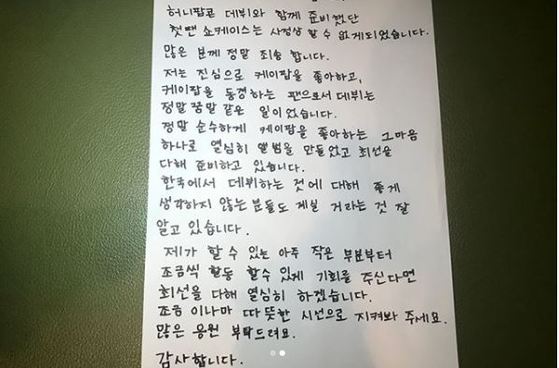 허니팝콘 데뷔와 함께 준비했단
첫땐 쇼케이스는 사정상 할 수 없게되었습니다.
많은 분께 정말 죄송 합니다.
저는 진심으로 케이팝을 좋아하고,
케이팝을 동경하는 팬으로서 데뷔는
정말 꿈말 같은 일이었습니다.
정말 순수하게 케이팝을 좋아하는 그마음
하나로 열심히 앨범을 만들었고 최선을
다해 준비하고 있습니다.
한국에서 데뷔하는 것에 대해 좋게
생각하지 않는 분들도 계실 거라는 것 잘
알고 있습니다.
제가 할 수 있는 아주 작은 부분부터
조금씩 활동 할수 있게 기회를 주신다면
최선을 다해 열심히 하겠습니다.
조금 이나마 따뜻한 시선으로 지켜봐 주세요.
많은 응원 부탁드려요.
감사합니다.